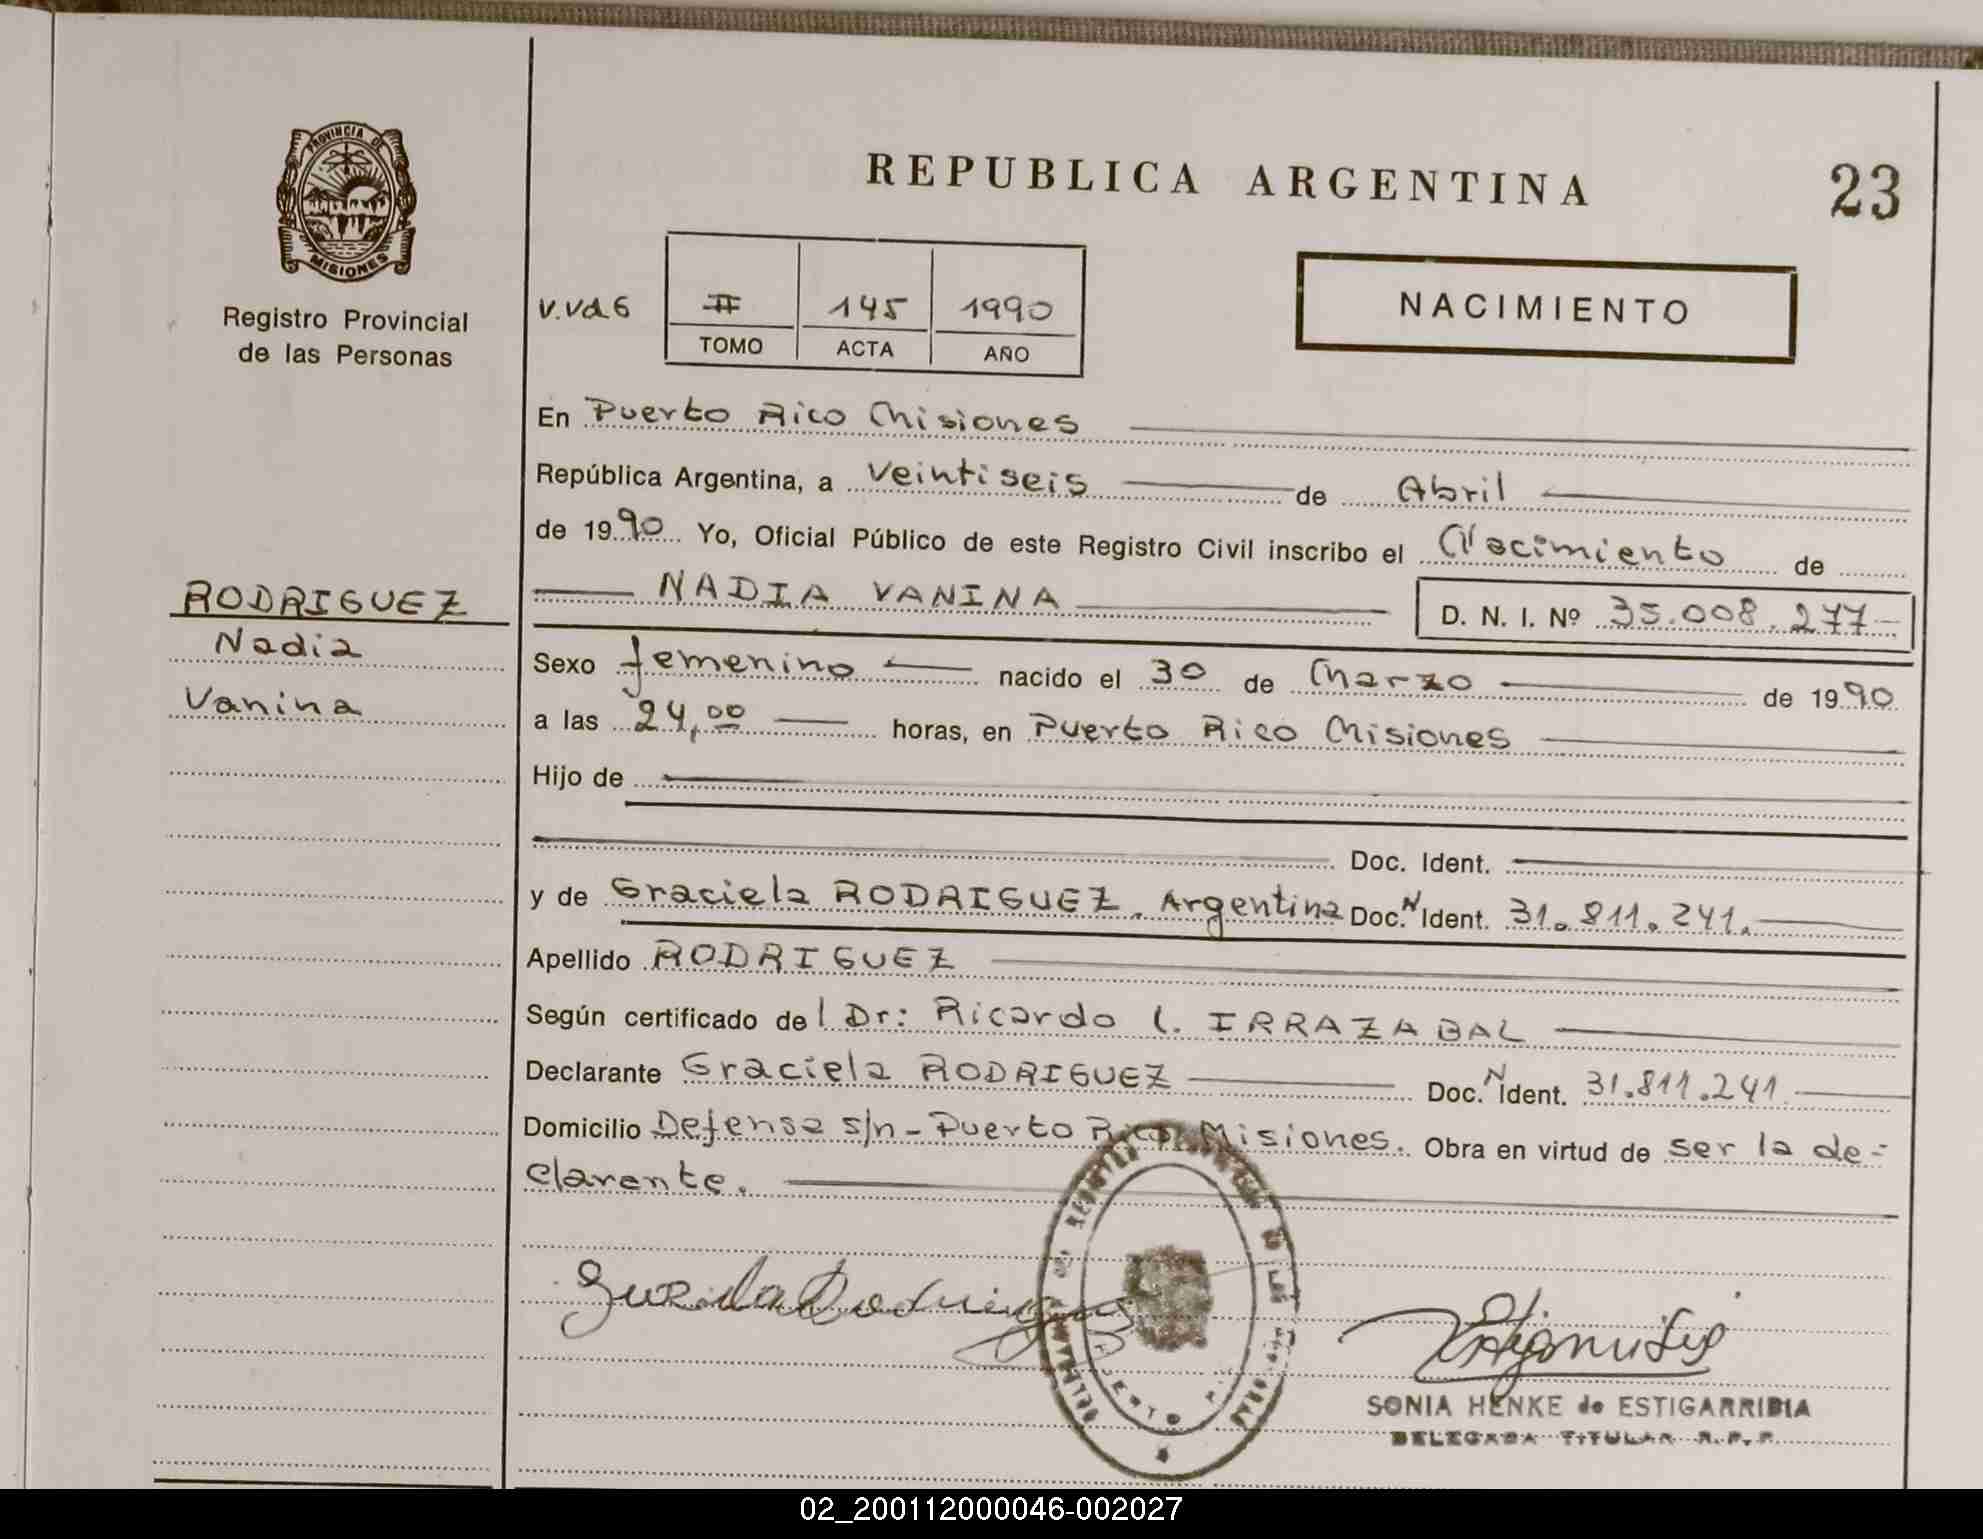 PROVINCIA DE
MISIONES
Registro Provincial
de las Personas
REPUBLICA ARGENTINA
23
V.Vd6
II 145 1990
TOMO ACTA AÑO
NACIMIENTO
En Puerto Rico Misiones
República Argentina, a veintiseis de Abril
de 1990 Yo, Oficial Público de este Registro Civil inscribo el Nacimiento de
NADIA VANINA D. N. I. Nº 35.008.277
RODRIGUEZ
Nadia
Vanina
Sexo femenino nacido el 30 de Marzo de 1990
a las 24,00 horas, en Puerto Rico Misiones
Hijo de
Doc. Ident.
y de Graciela RODRIGUEZ. Argentina Doc. N Ident. 31.811.241.
Apellido RODRIGUEZ
Según certificado del Dr: Ricardo L. IRRAZABAL
Declarante Graciela RODRIGUEZ Doc. N Ident. 31.811.241
Domicilio Defensa s/n - Puerto Rico Misiones. Obra en virtud de ser la de-
clarente.
SONIA HENKE de ESTIGARRIBIA
DELEGADA TITULAR R.P.P.
02_200112000046-002027